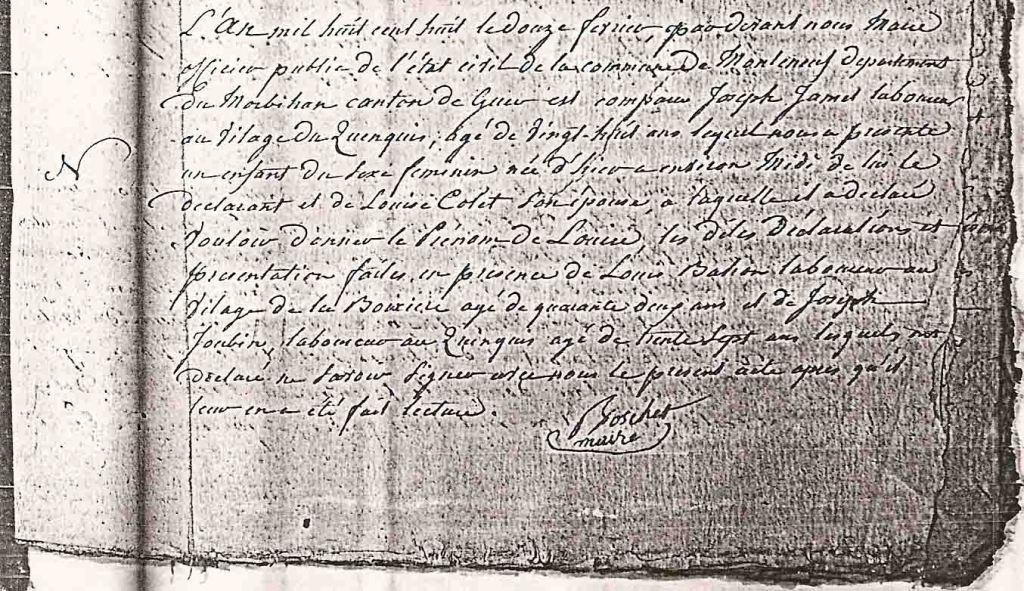 N
L'An mil huit cent huit le douze fevrier, par devant nous Maire
officier public de l'état civil de la commune De Monteneuf departement
Du Morbihan canton de Guer est comparu Joseph Jamet laboureur
au Vilage du Quenquis, agé de Vingt-huit ans lequel nous a presenté
un enfant du sexe feminin née d'hier a environ Midi de lui le
declarant et de Louise Colet son épouse, a laquelle il a declaré
Vouloir donner le Prénom de Louise, les dites Déclarations et
presentation faites en presence de Louis laboureur au
Vilage de la agé de quarante deux ans et de Joseph
Joubin, laboureur au Quinquis agé de trente sept ans lesquels
declaré ne savoir signer avec nous le present acte apres qu'il
leur en a été fait lecture.
maire